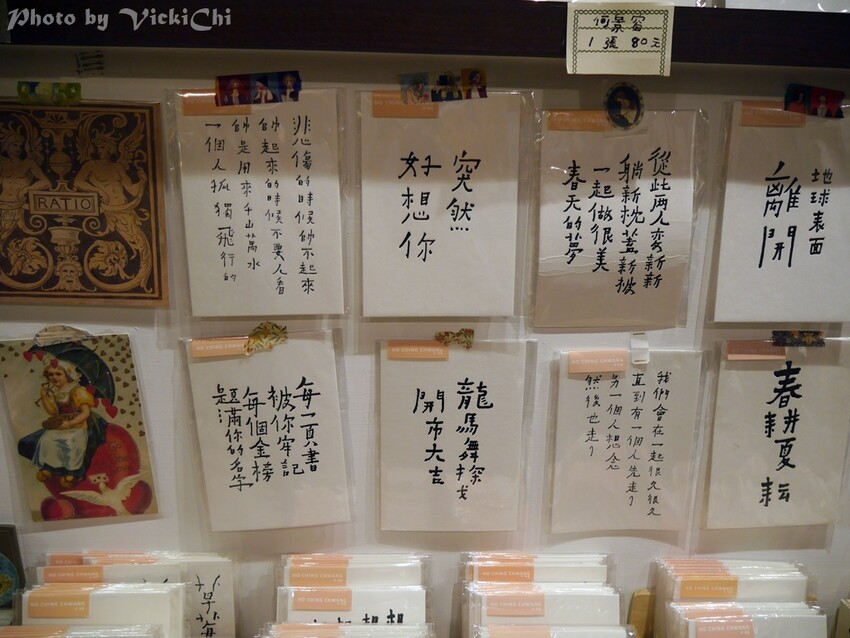 Photo by VickiChi
何景窗
1張 80元
RATIO
悲傷的時候帥不起來
帥起來的時候不要人看
帥是用來千山萬水
一個人孤獨飛行的
突然
好想你
從此两人新新
躺新枕蓋新被
一起做很美
春天的夢
地球表面
離開
每一頁書
被你牢記
每個金榜
題滿你的名字
龍馬舞探戈
開布大吉
我們會在一起很久很久
直到有一個人先走了
另一個人想念
然後也走了
春耕夏耘
HO CHING CHWANG
HO CHING CHWANG
HO CHING CHWANG